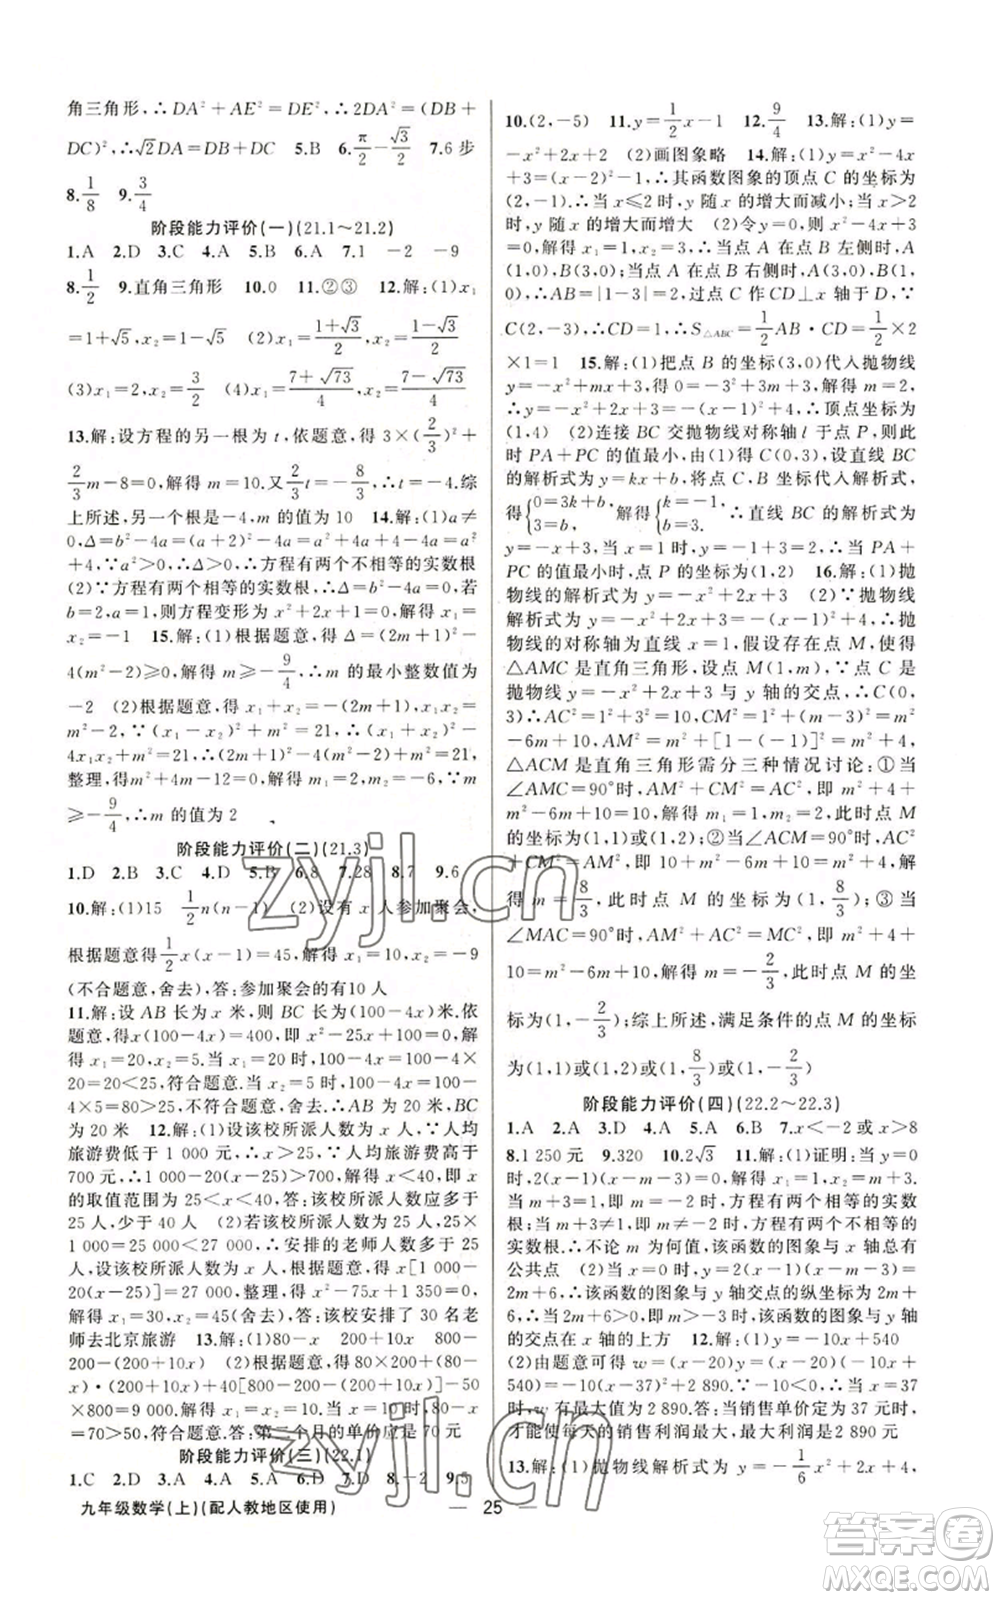 角三角形,∴DA²+AE²=DE²,∴2DA²=(DB+
DC)²,∴√2DA=DB+DC 5.B 6.π/2-√3/2 7.6步
8.1/8 9.3/4
阶段能力评价(一)(21.1~21.2)
1.A 2.D 3.C 4.A 5.B 6.A 7.1 -2 -9
8.1/2 9.直角三角形 10.0 11.②③ 12.解:(1)x₁
=1+√5,x₂=1-√5 (2)x₁=(1+√3)/2,x₂=(1-√3)/2
(3)x₁=2,x₂=3/8 (4)x₁=(7+√73)/4,x₂=(7-√73)/4
13.解:设方程的另一根为t,依题意,得3×(2/3)²+
2/3m-8=0,解得m=10.又2/3t=-8/3,∴t=-4.综
上所述,另一个根是-4,m的值为10 14.解:(1)a≠
0,Δ=b²-4a=(a+2)²-4a=a²+4a+4-4a=a²
+4,∵a²>0,∴Δ>0,∴方程有两个不相等的实数根
(2)∵方程有两个相等的实数根,∴Δ=b²-4a=0,若
b=2,a=1,则方程变形为x²+2x+1=0,解得x₁=
x₂=-1 15.解:(1)根据题意,得Δ=(2m+1)²-
4(m²-2)≥0,解得m≥-9/4,∴m的最小整数值为
-2 (2)根据题意,得x₁+x₂=-(2m+1),x₁x₂=
m²-2,∵(x₁-x₂)²+m²=21,∴(x₁+x₂)²-
4x₁x₂+m²=21,∴(2m+1)²-4(m²-2)+m²=21,
整理,得m²+4m-12=0,解得m₁=2,m₂=-6,∵m
≥-9/4,∴m的值为2
阶段能力评价(二)(21.3)
1.D 2.B 3.C 4.D 5.B 6.8 7.28 8.7 9.6
10.解:(1)15 1/2n(n-1) (2)设有x人参加聚会,
根据题意得1/2x(x-1)=45,解得x₁=10,x₂=-9
(不合题意,舍去),答:参加聚会的有10人
11.解:设AB长为x米,则BC长为(100-4x)米.依
题意,得x(100-4x)=400,即x²-25x+100=0,解
得x₁=20,x₂=5.当x=20时,100-4x=100-4×
20=20<25,符合题意.当x=5时,100-4x=100-
4×5=80>25,舍去.∴AB为20米,BC
为20米 12.解:(1)设该校所派人数为x人,∵人均
旅游费低于1 000元,∴x>25,∵人均旅游费高于
700元,∴1 000-20(x-25)>700,解得x<40,∴x
的取值范围为25<x<40,答:该校所派人数应多于
25人,少于40人 (2)若该校所派人数为25人,则
1 000×25=25 000<27 000,∴安排的老师人数超过
25人,设该校所派人数为x人,根据题意,得x[1 000
-20(x-25)]=27 000,整理,得x²-75x+1350=
0,解得x₁=30,x₂=45,∵25<x<40,∴x=45不合
题意,舍去,∴x=30.答:该校安排了30名老
师去北京旅游 13.解:(1)80-x 200+10x 800-
200-(200+10x) (2)根据题意,得80×200+(80-
x)·(200+10x)+40[800-200-(200+10x)]-50
×800=9000,解得x₁=x₂=10.当x=10时,80-x
=70>50,符合题意.答:第二个月的单价应是70元
阶段能力评价(三)(22.1)
1.C 2.D 3.A 4.A 5.D 6.D 7.D 8.-2 9.5
10.(2,-5) 11.y=1/2x-1 12.9/4 13.解:(1)y=
-x²+2x+2 (2)画图象略 14.解:(1)y=x²-4x
+3=(x-2)²-1,∴其函数图象的顶点C的坐标为
(2,-1).∴当x≤2时,y随x的增大而减小;当x>2
时,y随x的增大而增大 (2)令y=0,则x²-4x+3
=0,解得x₁=1,x₂=3,∴当点A在点B左侧时,
A(1,0),B(3,0);当点A在点B右侧时,A(3,0),
B(1,0),∴AB=|1-3|=2,过点C作CD⊥x轴于D,∵
C(2,-3),∴CD=1,∴S△ABC=1/2AB·CD=1/2×2
×1=1 15.解:(1)把点B的坐标(3,0)代入抛物线
y=-x²+mx+3,得0=-3²+3m+3,解得m=2,
∴y=-x²+2x+3=-(x-1)²+4,∴顶点坐标为
(1,4) (2)连接BC交抛物线对称轴l于点P,则此
时PA+PC的值最小,由(1)得C(0,3),设直线BC
的解析式为y=kx+b,将点C,B的坐标代入解析式,
得{0=3k+b, 3=b. 解得{k=-1, b=3. ∴直线BC的解析式为
y=-x+3,当x=1时,y=-1+3=2,∴当PA+
PC的值最小时,点P的坐标为(1,2) 16.解:(1)抛
物线的解析式为y=-x²+2x+3 (2)∵抛物线的
解析式为y=-x²+2x+3=-(x-1)²+4,∴抛物
线的对称轴为直线x=1,假设存在点M,使得
△AMC是直角三角形,设点M(1,m),∵点C是
抛物线y=-x²+2x+3与y轴的交点,∴C(0,
3),∴AC²=1²+3²=10,CM²=1²+(3-m)²=m²-
6m+10,AM²=m²+[1-(-1)]²=m²+4,
△ACM是直角三角形需分三种情况讨论:①当
∠AMC=90°时,AC²=AM²+CM²,即m²+4+
m²-6m+10=10,解得m₁=1,m₂=2,此时点M
的坐标为(1,1)或(1,2);②当∠ACM=90°时,
AC²+CM²=AM²,即10+m²-6m+10=m²+4,
解得m=8/3,此时点M的坐标为(1,8/3);③当
∠MAC=90°时,AM²+AC²=MC²,即m²+4
+10=m²-6m+10,解得m=-2/3,此时点M的坐
标为(1,-2/3);综上所述,满足条件的点M的坐标
为(1,1)或(1,2)或(1,8/3)或(1,-2/3)
阶段能力评价(四)(22.2~22.3)
1.A 2.A 3.D 4.A 5.A 6.B 7.x<-2或x>8
8.1 250元 9.320 10.2√3 11.解:(1)证明:当y=0
时,2(x-1)(x-m-3)=0,解得x₁=1,x₂=m+3.
当m+3=1,即m=-2时,方程有两个相等的实数
根;当m+3≠1,即m≠-2时,方程有两个不相等的
实数根.∴不论m为何值,该函数的图象与x轴总有
公共点 (2)当x=0时,y=2(x-1)(x-m-3)=
2m+6,∴该函数的图象与y轴交点的纵坐标为2m+
6,∴当2m+6>0,即m>-3时,该函数的图象与y轴
的交点在x轴的上方 12.解:(1)y=-10x+540
(2)由题意可得w=(x-20)y=(x-20)(-10x+
540)=-10(x-37)²+2 890.∵-10<0,∴当x=37
时,w有最大值为2 890,答:当销售单价定为37元时,
才能使每天的销售利润最大,最大利润是2 890元
13.解:(1)抛物线解析式为y=-1/6x²+2x+4,
九年级数学(上)(配人教地区使用)
25
zyjl.cn
zyjl.cn
答案圈
MXQE.COM